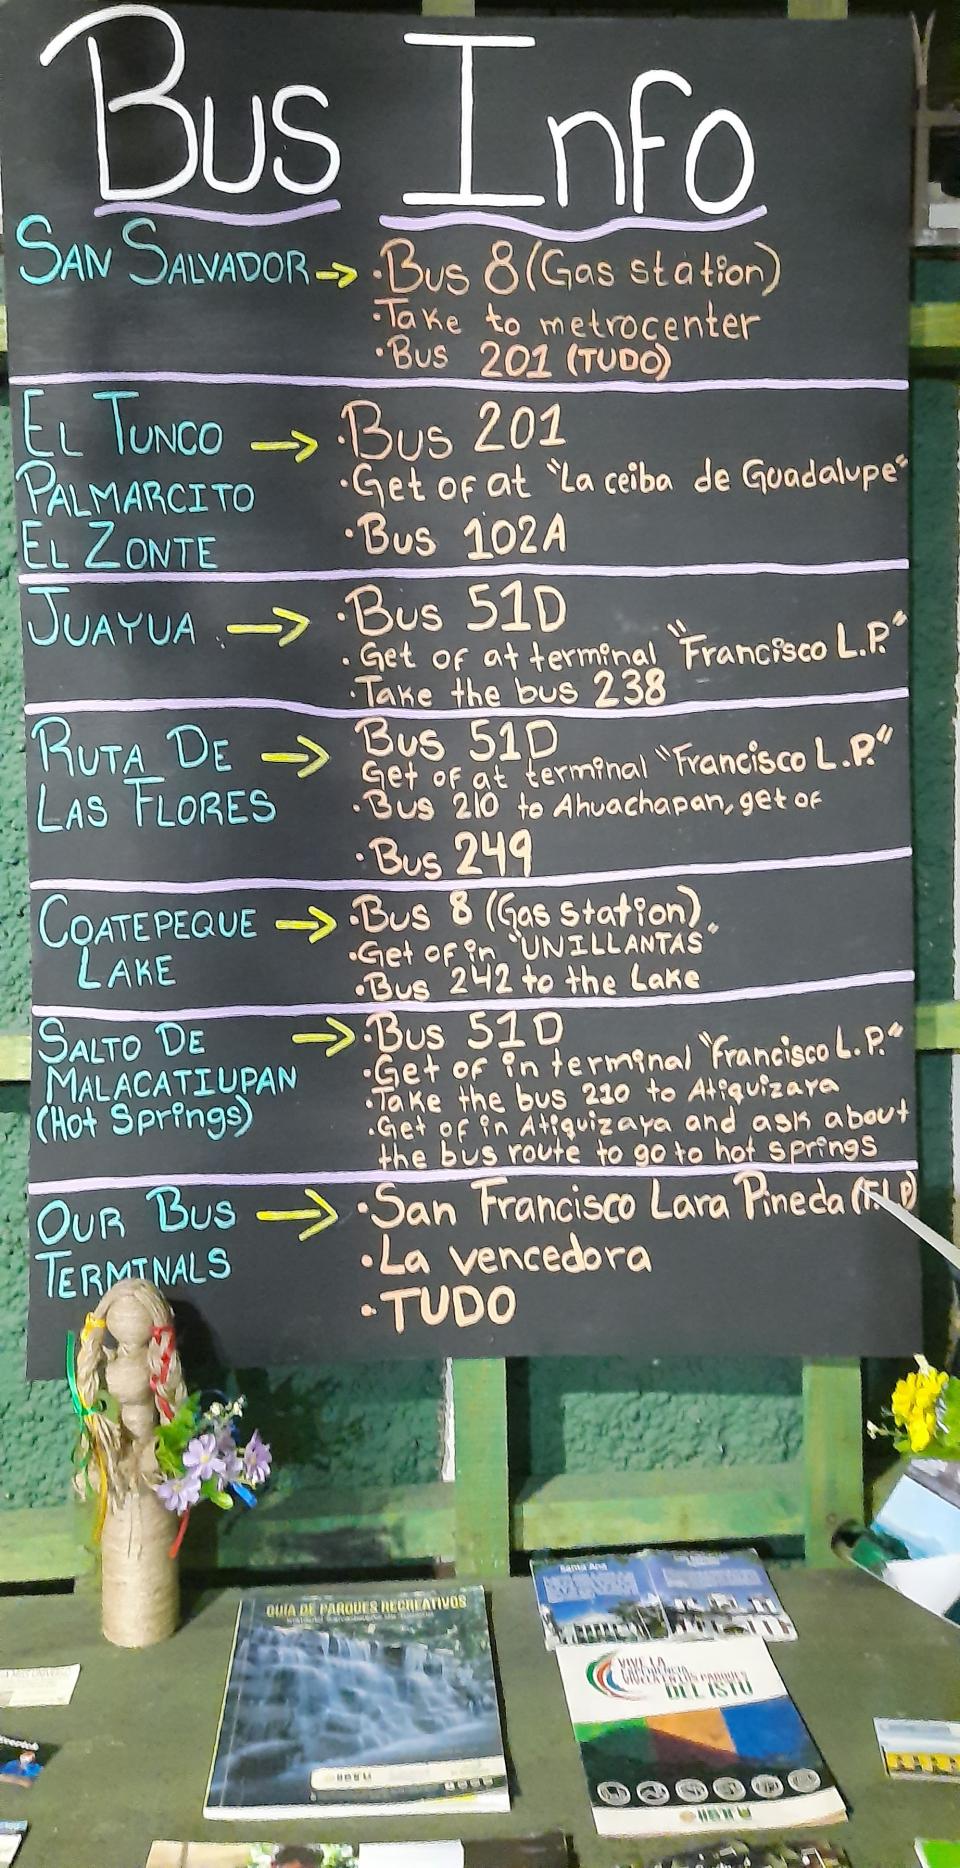 Bus Info
SAN SALVADOR → •Bus 8 (Gas station)
•Take to metrocenter
•Bus 201 (TUDO)
EL TUNCO → •Bus 201
PALMARCITO •Get of at "La ceiba de Guadalupe"
EL ZONTE •Bus 102A
JUAYUA → •Bus 51D
•Get of at terminal "Francisco L.P."
•Take the bus 238
RUTA DE → Bus 51D
Get of at terminal "Francisco L.P."
LAS FLORES •Bus 210 to Ahuachapan, get of
•Bus 249
COATEPEQUE → •Bus 8 (Gas station)
LAKE •Get of in "UNILLANTAS"
•Bus 242 to the Lake
SALTO DE → •Bus 51D
MALACATIUPAN •Get of in terminal "Francisco L.P."
(Hot Springs) •Take the bus 210 to Atiquizaya
•Get of in Atiquizaya and ask about
the bus route to go to hot springs
OUR BUS → •San Francisco Lara Pineda (F.L.P)
TERMINALS •La vencedora
•TUDO
Santa Ana
GUÍA DE PARQUES RECREATIVOS
VIVE LA
EXPERIENCIA
VIVELA EN LOS PARQUES
DEL ISTU